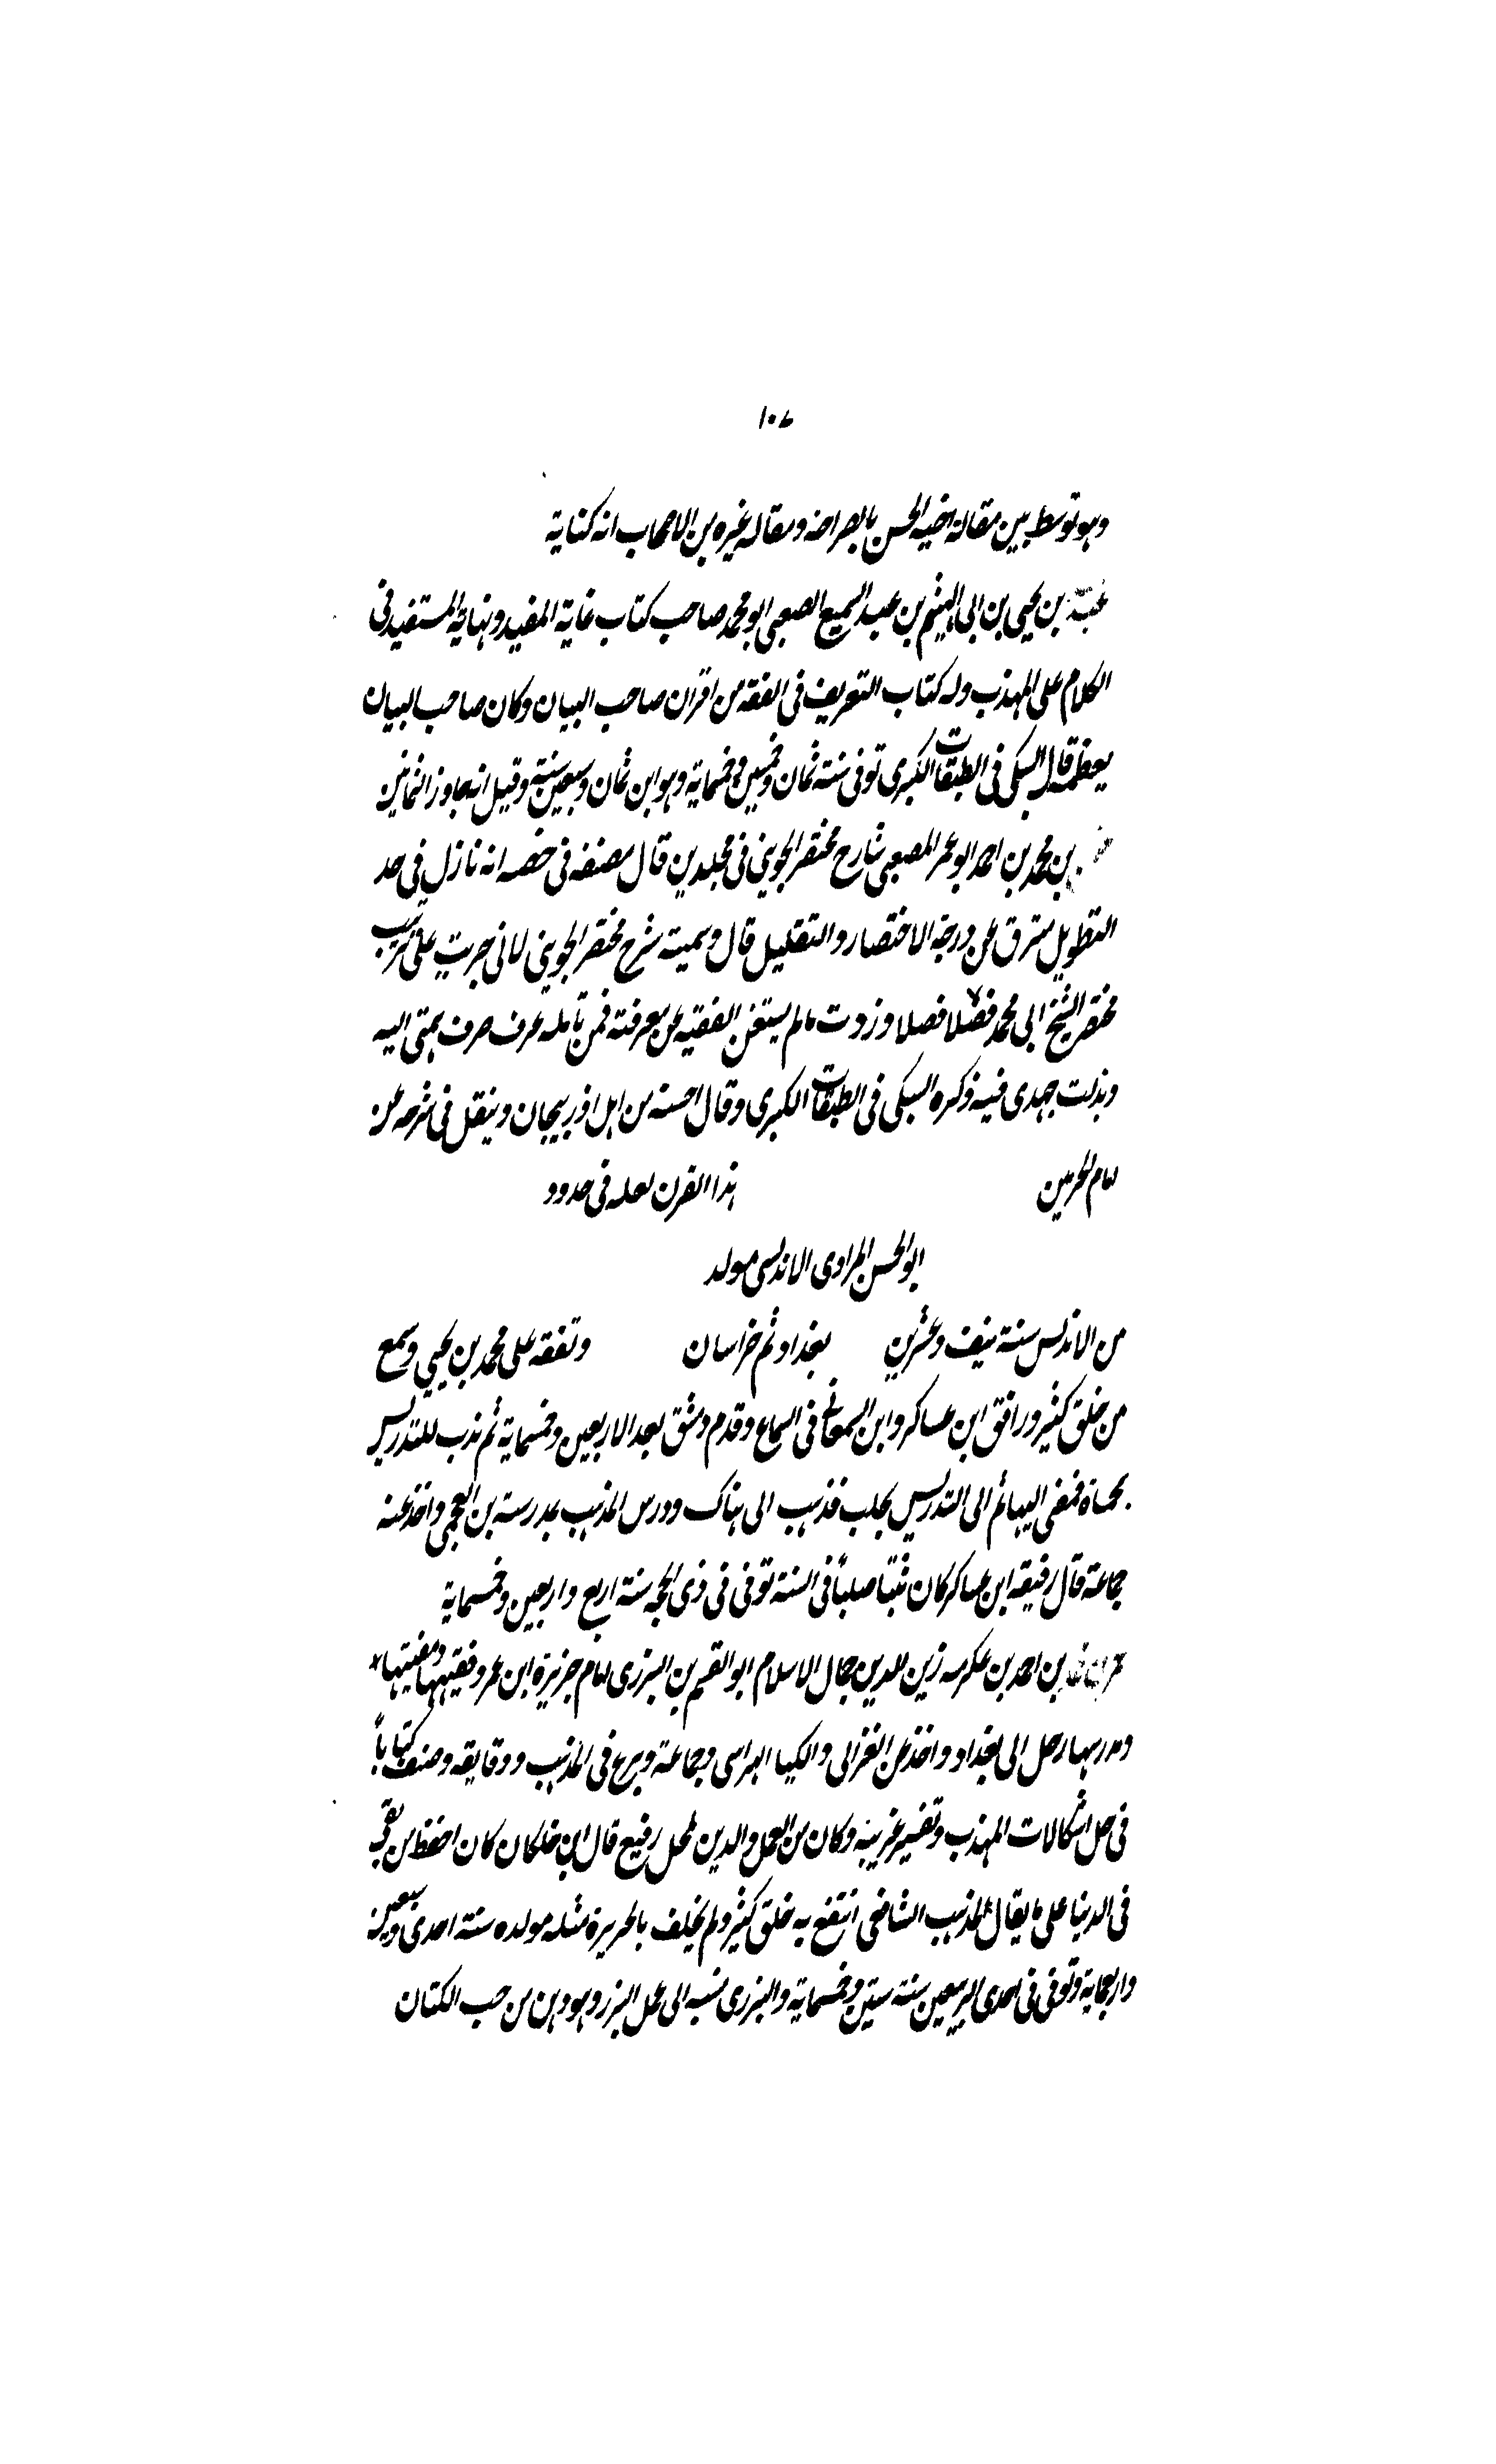 ١٠٧
وهو توسط بين مقالة اخيه الحسن بالصراحة ومقالة غيره من الاصحاب انه كناية
بن يحيى بن ابى الهيثم بن عبد السميع الصعبى ابو محمد صاحب كتاب غاية المفيد ونهاية المستفيد فى
الكلام على المهذب وله كتاب التعريف فى الفقه من اقران صاحب البيان وكان صاحب البيان
يعظمه قال السبكى فى الطبقات الكبرى توفى سنة ثمان وخمسين وخمسماية وهو ابن ثمان وسبعين سنة وقيل انه جاوز الثمانين
بن محمد بن احمد ابو عمر المصعبى شارح مختصر الجوينى فى مجلدين قال مصنفه فى خصه انه نازل فى حد
التطويل مترق عن درجة الاختصار والتقليل قال وسميته شرح مختصر الجوينى لانى جريت على ترتيب
مختصر الشيخ ابى محمد فصلا فصلا وزدت مالم يستغن الفقيه عن معرفته فمن تأمله عرف صرف همتى اليه
وبذلت جهدى فيه ذكره السبكى فى الطبقات الكبرى وقال احسنه من اهل اذربيجان وينقل فى شرحه عن
امام الحرمين هذا القرن لعله فى حدود
ابو الحسن المرادى الاندلسى مولد
من الاندلس سنة نيف وعشرين بغداد ثم خراسان وتفقه على محمد بن يحيى وسمع
من خلق كثير ورافق ابن عساكر وابن السمعانى فى السماع وقدم دمشق بعد الاربعين وخمسماية ثم ندب للتدريس
بحماة فمضى اليها ثم الى التدريس بحلب فذهب الى هناك ودرس المذهب بمدرسة بن العجمى واخذ عنه
جماعة قال رفيقه ابن عساكر كان ثبتا صلباً فى السنة توفى فى ذى الحجه سنة اربع واربعين وخمسماية
بن احمد بن عكرمه زين الدين جمال الاسلام ابو القسم بن البزرى امام جزيرة ابن عمر وفقيهها ومفتيها
ومدرسها رحل الى بغداد واخذ عن الغزالى والكيا الهراسى وجماعة وبرع فى المذهب ودقايقه وصنف كتاباً
فى حل اشكالات المهذب وتفسير غريبه وكان من العمل والدين لمحل رفيع قال ابن خلكان كان احفظ من بقى
فى الدنيا على ما يقال لمذهب الشافعى انتفع به خلق كثير ولم يخلف بالحريرة مثله مولده سنة احدى وسبعين
واربعماية وتوفى فى احدى الربيعين سنة ستين وخمسماية والبزرى نسبه الى عمل البزر وهو دهن من حب الكتان